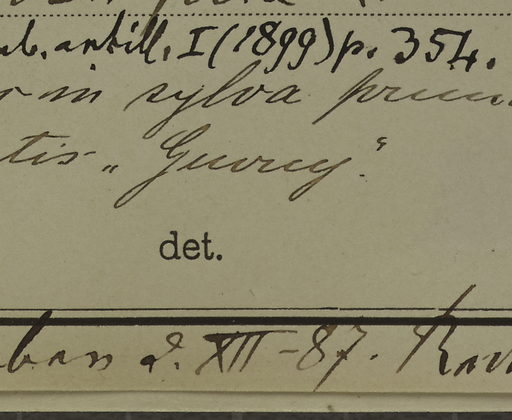 ub. antill. I (1899) p. 354.
in sylva prim
tis „Gurruy.“
det.
ban d. XII-87.